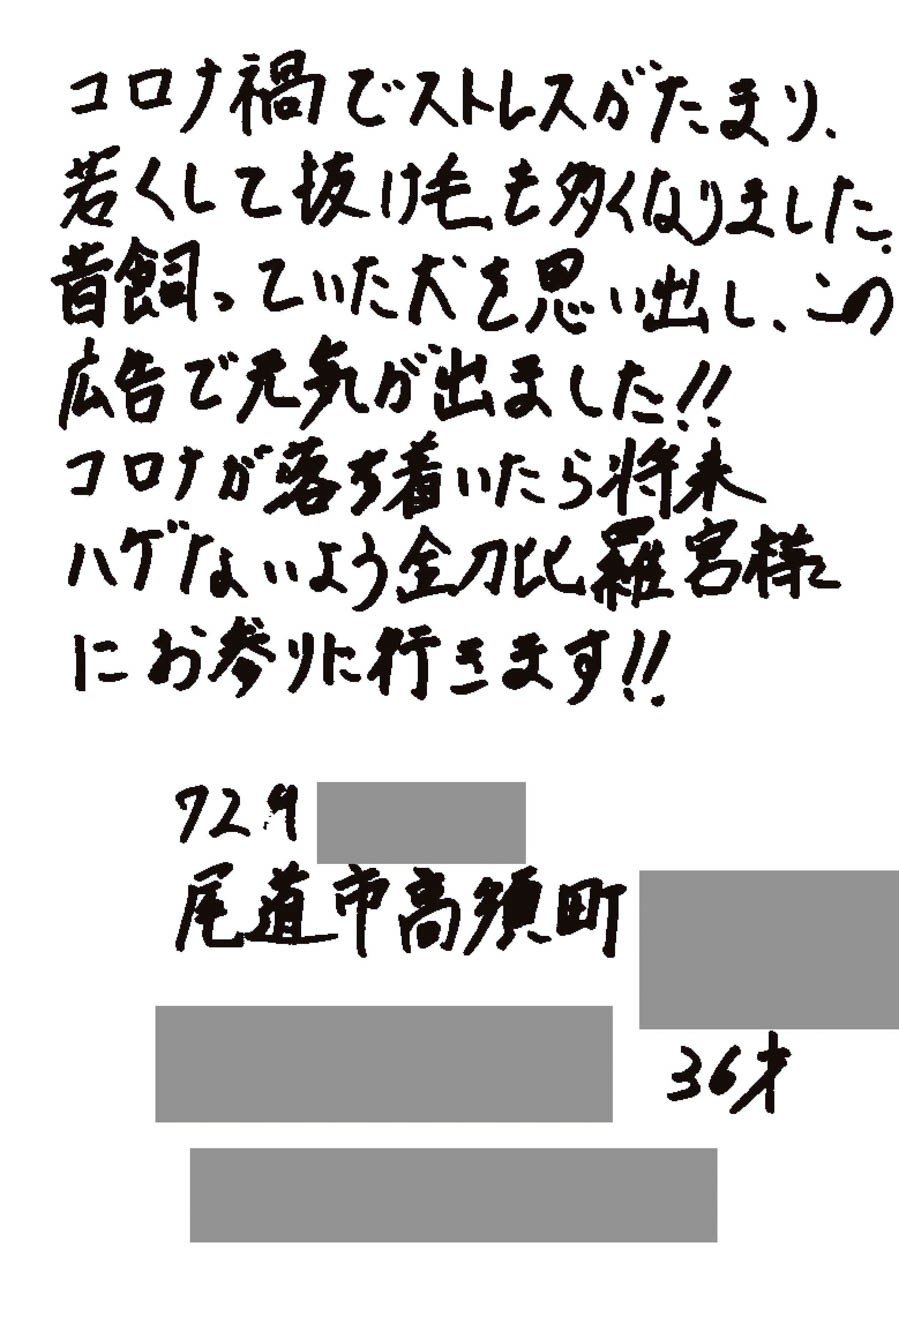 コロナ禍でストレスがたまり、
若くして抜け毛も多くなりました。
昔飼っていた犬を思い出し、この
広告で元気が出ました!!
コロナが落ち着いたら将来
ハゲないよう金刀比羅宮様に
にお参りに行きます!!
729
尾道市高須町
36才